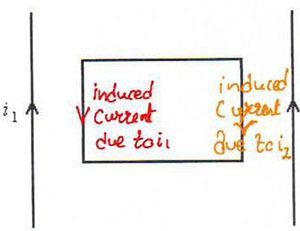 i₁
induced
current
due to i₁
induced
current
due to i₂